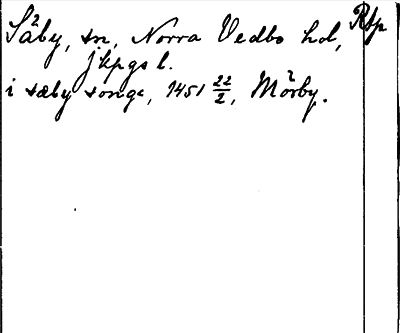 Säby, sn, Norra Vedbo hd, Rtp
Jkpgs l.
i sæby songe, 1451 22/2, Mörby.